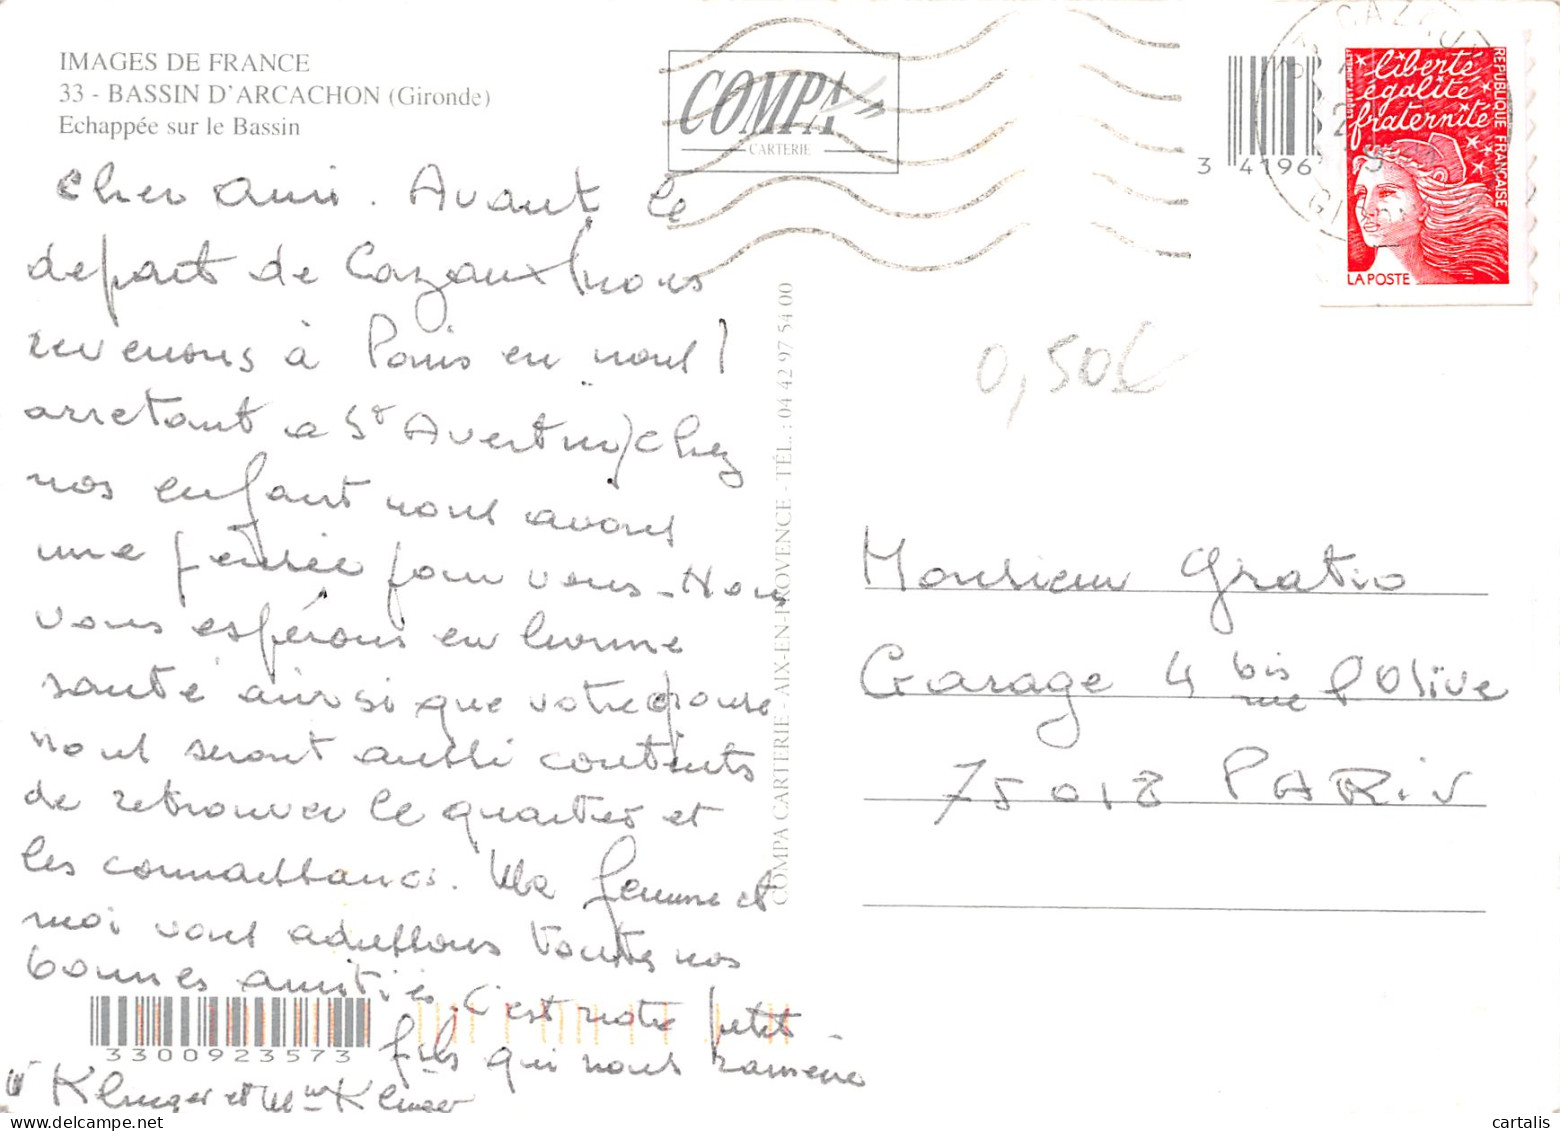 IMAGES DE FRANCE
33 - BASSIN D'ARCACHON (Gironde)
Echappée sur le Bassin
COMPA
CARTERIE
3 4196
CAZAUX
liberté
égalité
fraternité
REPUBLIQUE FRANÇAISE
LA POSTE
0,50€
Cher ami. Avant le
depart de Cazaux (nous
revenons à Paris en nous
arretant a St Avertin) chez
nos enfant nous avons
une pensée pour vous - Nous
vous espérons en bonne
santé ainsi que votre épouse
nous serons aussi contents
de retrouver le quartier et
les connaissances. Ma femme et
moi vous adressons toutes nos
bonnes amitiés. C'est notre petit
fils qui nous ramène
Kluger et Mme Kluger
3300923573
COMPA CARTERIE - AIX-EN-PROVENCE - TÉL. : 04 42 97 54 00
Monsieur Gratio
Garage 4 bis rue l'Olive
75018 PARIS
cartalis